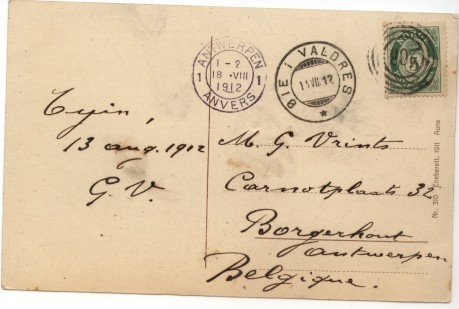 ANTWERPEN
1 - 2
1 18 - VIII 1
1912
ANVERS
ØIE i VALDRES
14 VIII 12
Tyin,
13 aug. 1912
G. V.
M. G. Vrints
Carnotplaats 32
Borgerhout
Antwerpen
Belgique.
Nr. 310 Eneberett. 1911 Aune